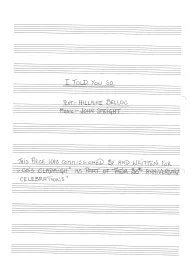 I TOLD YOU SO
TEXT: HILLAIRE BELLOC
MUSIC - JOHN SPEIGHT
THIS PIECE WAS COMMISSIONED BY AND WRITTEN FOR
AS PART OF THEIR 30TH ANNIVERSARY
CELEBRATIONS"